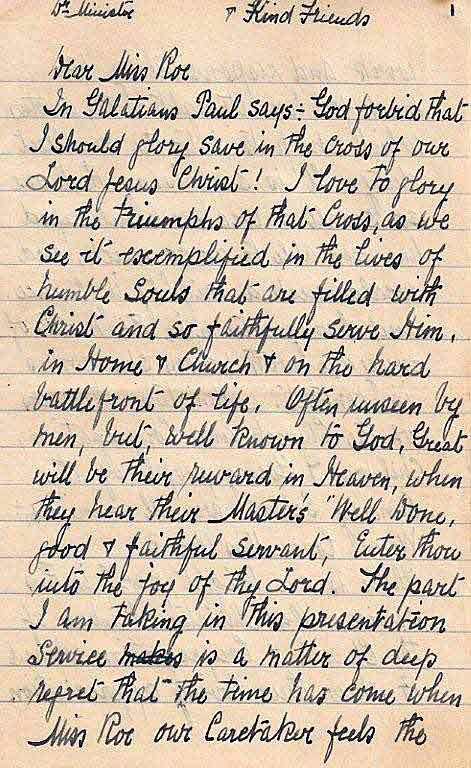 Dr Minister & Kind Friends 1
Dear Miss Roe
In Galatians Paul says:- God forbid that
I should glory save in the Cross of our
Lord Jesus Christ! I love to glory
in the triumphs of that Cross, as we
see it excemplified in the lives of
humble souls that are filled with
Christ and so faithfully serve Him,
in Home & Church & on the hard
battlefront of life. Often unseen by
men, but, well known to God, Great
will be their reward in Heaven, when
they hear their Master's "Well Done,
good & faithful servant, Enter thou
into the joy of thy Lord. The part
I am taking in this presentation
Service makes is a matter of deep
regret that the time has come when
Miss Roe our Caretaker feels the